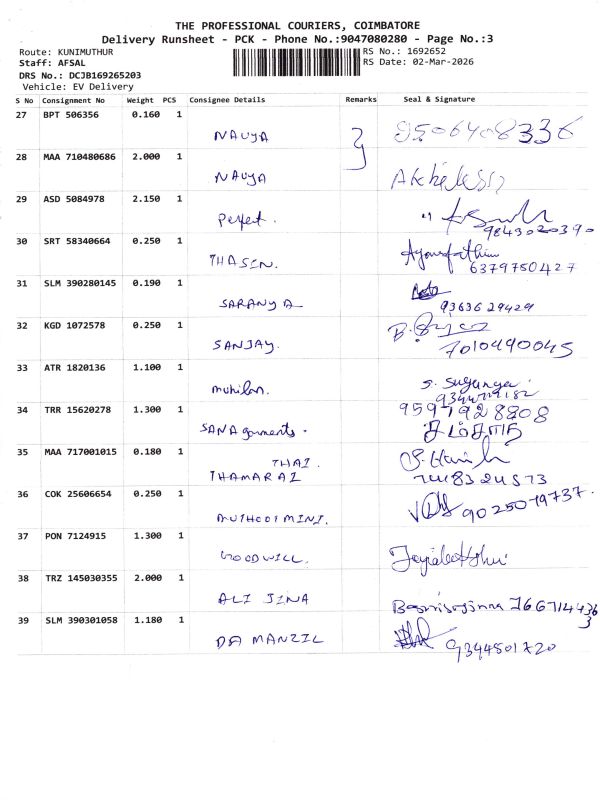 THE PROFESSIONAL COURIERS, COIMBATORE
Delivery Runsheet - PCK - Phone No.:9047080280 - Page No.:3
Route: KUNIMUTHUR RS No.: 1692652
Staff: AFSAL RS Date: 02-Mar-2026
DRS No.: DCJB169265203
Vehicle: EV Delivery
S No Consignment No Weight PCS Consignee Details Remarks Seal & Signature
27 BPT 506356 0.160 1
NAVYA 9506408336
28 MAA 710480686 2.000 1
NAVYA
29 ASD 5084978 2.150 1
Perfect.
9843020390
30 SRT 58340664 0.250 1
THASIN. 6379750427
31 SLM 390280145 0.190 1
SARANYA 9363629429
32 KGD 1072578 0.250 1
SANJAY. 7010490045
33 ATR 1820136 1.100 1
Mukilan. S. Suganya
34 TRR 15620278 1.300 1 9597928808
SANA garments.
35 MAA 717001015 0.180 1
THAI.
THAMARAI
36 COK 25606654 0.250 1
MUTHOOT MINI. 9025079737.
37 PON 7124915 1.300 1
GOODWILL.
38 TRZ 145030355 2.000 1
ALI JINA
39 SLM 390301058 1.180 1
DA MANZIL 9344801720